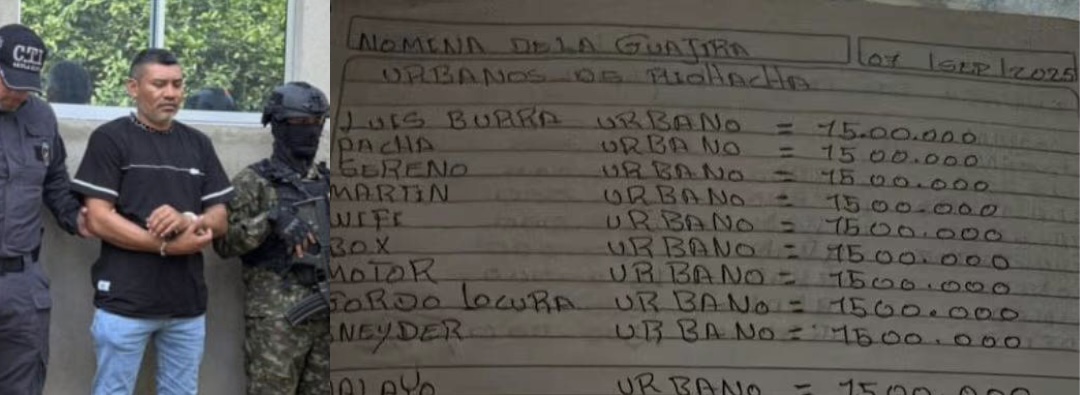 CTI
NOMINA DE LA GUAJIRA
07 | SEP | 2025
URBANOS DE RIOHACHA
LUIS BURRA URBANO = 15.00.000
PACHA URBANO = 1500.000
SERENO URBANO = 1500.000
MARTIN URBANO = 1500.000
URBANO = 1500.000
BOX URBANO = 1500.000
MOTOR URBANO = 1500.000
GORDO LOCURA URBANO = 1500.000
NEYDER URBANO = 1500.000
ALAYO URBANO = 1500.000